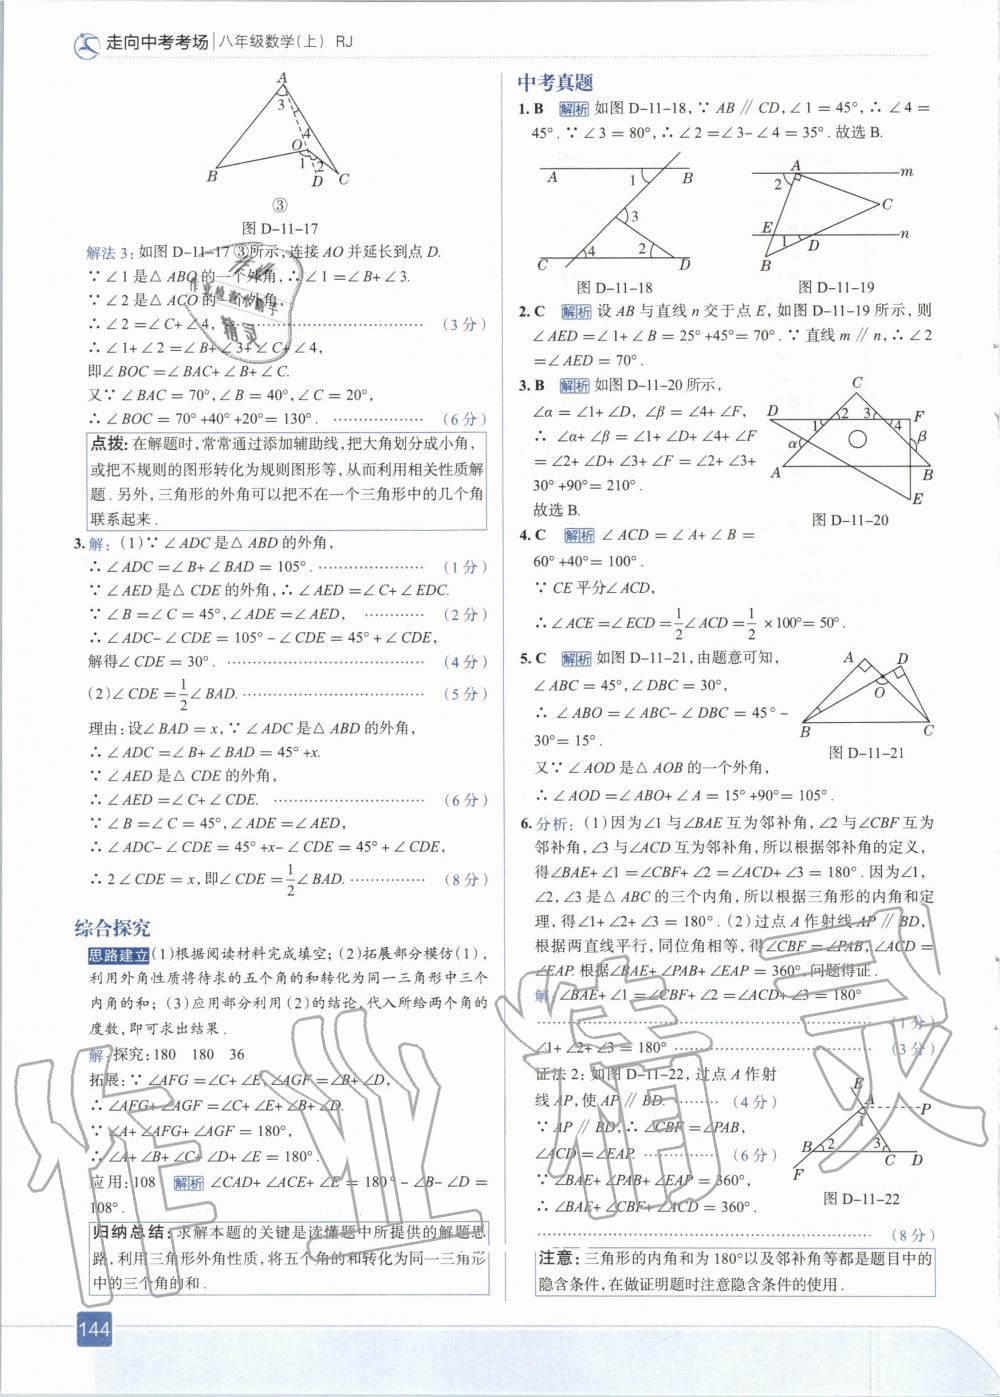 走向中考考场 八年级数学(上) RJ
A
3
4
O
1
2
B
D
C
③
图 D-11-17
解法 3:如图 D-11-17 ③所示,连接 AO 并延长到点 D.
∵∠1 是△ ABO 的一个外角,∴∠1 =∠B+∠3.
∵∠2 是△ ACO 的一个外角,
∴∠2 =∠C+∠4, (3 分)
∴∠1+∠2 =∠B+∠3+∠C+∠4,
即∠BOC =∠BAC+∠B+∠C.
又∵∠BAC = 70°,∠B = 40°,∠C = 20°,
∴∠BOC = 70° +40° +20°= 130°. (6 分)
点拨:在解题时,常常通过添加辅助线,把大角划分成小角,
或把不规则的图形转化为规则图形等,从而利用相关性质解
题.另外,三角形的外角可以把不在一个三角形中的几个角
联系起来.
3.解:(1)∵∠ADC 是△ ABD 的外角,
∴∠ADC =∠B+∠BAD = 105°. (1 分)
∵∠AED 是△ CDE 的外角,∴∠AED =∠C+∠EDC.
∵∠B =∠C = 45°,∠ADE =∠AED, (2 分)
∴∠ADC-∠CDE = 105° -∠CDE = 45° +∠CDE,
解得∠CDE = 30°. (4 分)
(2)∠CDE =1/2∠BAD. (5 分)
理由:设∠BAD = x,∵∠ADC 是△ ABD 的外角,
∴∠ADC =∠B+∠BAD = 45° +x.
∵∠AED 是△ CDE 的外角,
∴∠AED =∠C+∠CDE. (6 分)
∵∠B =∠C = 45°,∠ADE =∠AED,
∴∠ADC-∠CDE = 45° +x-∠CDE = 45° +∠CDE,
∴2∠CDE = x,即∠CDE =1/2∠BAD. (8 分)
综合探究
思路建立(1)根据阅读材料完成填空;(2)拓展部分模仿(1),
利用外角性质将待求的五个角的和转化为同一三角形中三个
内角的和;(3)应用部分利用(2)的结论,代入所给两个角的
度数,即可求出结果.
解:探究:180 180 36
拓展:∵∠AFG =∠C+∠E,∠AGF =∠B+∠D,
∴∠AFG+∠AGF =∠C+∠E+∠B+∠D.
∵∠A+∠AFG+∠AGF = 180°,
∴∠A+∠B+∠C+∠D+∠E = 180°.
应用:108 解析 ∠CAD+∠ACE+∠E = 180°-∠B-∠D =
108°.
归纳总结:求解本题的关键是读懂题中所提供的解题思
路,利用三角形外角性质,将五个角的和转化为同一三角形
中的三个角的和.
144
中考真题
1. B 解析 如图 D-11-18,∵AB∥CD,∠1 = 45°,∴∠4 =
45°.∵∠3 = 80°,∴∠2 =∠3-∠4 = 35°.故选 B.
A
1
B
3
4
2
C
D
图 D-11-18
A
m
2
C
E
1
D
n
B
图 D-11-19
2. C 解析 设 AB 与直线 n 交于点 E,如图 D-11-19 所示,则
∠AED =∠1+∠B = 25° +45°= 70°.∵直线 m∥n,∴∠2
=∠AED = 70°.
3. B 解析 如图 D-11-20 所示,
∠α =∠1+∠D,∠β =∠4+∠F,
∴∠α+∠β =∠1+∠D+∠4+∠F
=∠2+∠D+∠3+∠F =∠2+∠3+
30° +90°= 210°.
故选 B.
C
D
1
2
3
4
F
α
β
A
B
E
图 D-11-20
4. C 解析 ∠ACD =∠A+∠B =
60° +40°= 100°.
∵CE 平分∠ACD,
∴∠ACE =∠ECD =1/2∠ACD =1/2 ×100°= 50°.
5. C 解析 如图 D-11-21,由题意可知,
∠ABC = 45°,∠DBC = 30°,
∴∠ABO =∠ABC-∠DBC = 45° -
30°= 15°.
又∵∠AOD 是△ AOB 的一个外角,
∴∠AOD =∠ABO+∠A = 15° +90°= 105°.
A
D
O
B
C
图 D-11-21
6.分析:(1)因为∠1 与∠BAE 互为邻补角,∠2 与∠CBF 互为
邻补角,∠3 与∠ACD 互为邻补角,所以根据邻补角的定义,
得∠BAE+∠1 =∠CBF+∠2 =∠ACD+∠3 = 180°.因为∠1,
∠2,∠3 是△ ABC 的三个内角,所以根据三角形的内角和定
理,得∠1+∠2+∠3 = 180°.(2)过点 A 作射线 AP∥BD,
根据两直线平行,同位角相等,得∠CBF =∠PAB,∠ACD =
∠EAP.根据∠BAE+∠PAB+∠EAP = 360°,问题得证.
解:∠BAE+∠1 =∠CBF+∠2 =∠ACD+∠3 = 180°
(1 分)
∠1+∠2+∠3 = 180° (3 分)
证法 2:如图 D-11-22,过点 A 作射
线 AP,使 AP∥BD. (4 分)
∵AP∥BD,∴∠CBF =∠PAB,
∠ACD =∠EAP. (6 分)
∵∠BAE+∠PAB+∠EAP = 360°,
∴∠BAE+∠CBF+∠ACD = 360°.
(8 分)
E
A
P
1
B
2
3
C
D
F
图 D-11-22
注意:三角形的内角和为 180°以及邻补角等都是题目中的
隐含条件,在做证明题时注意隐含条件的使用.
作业精灵